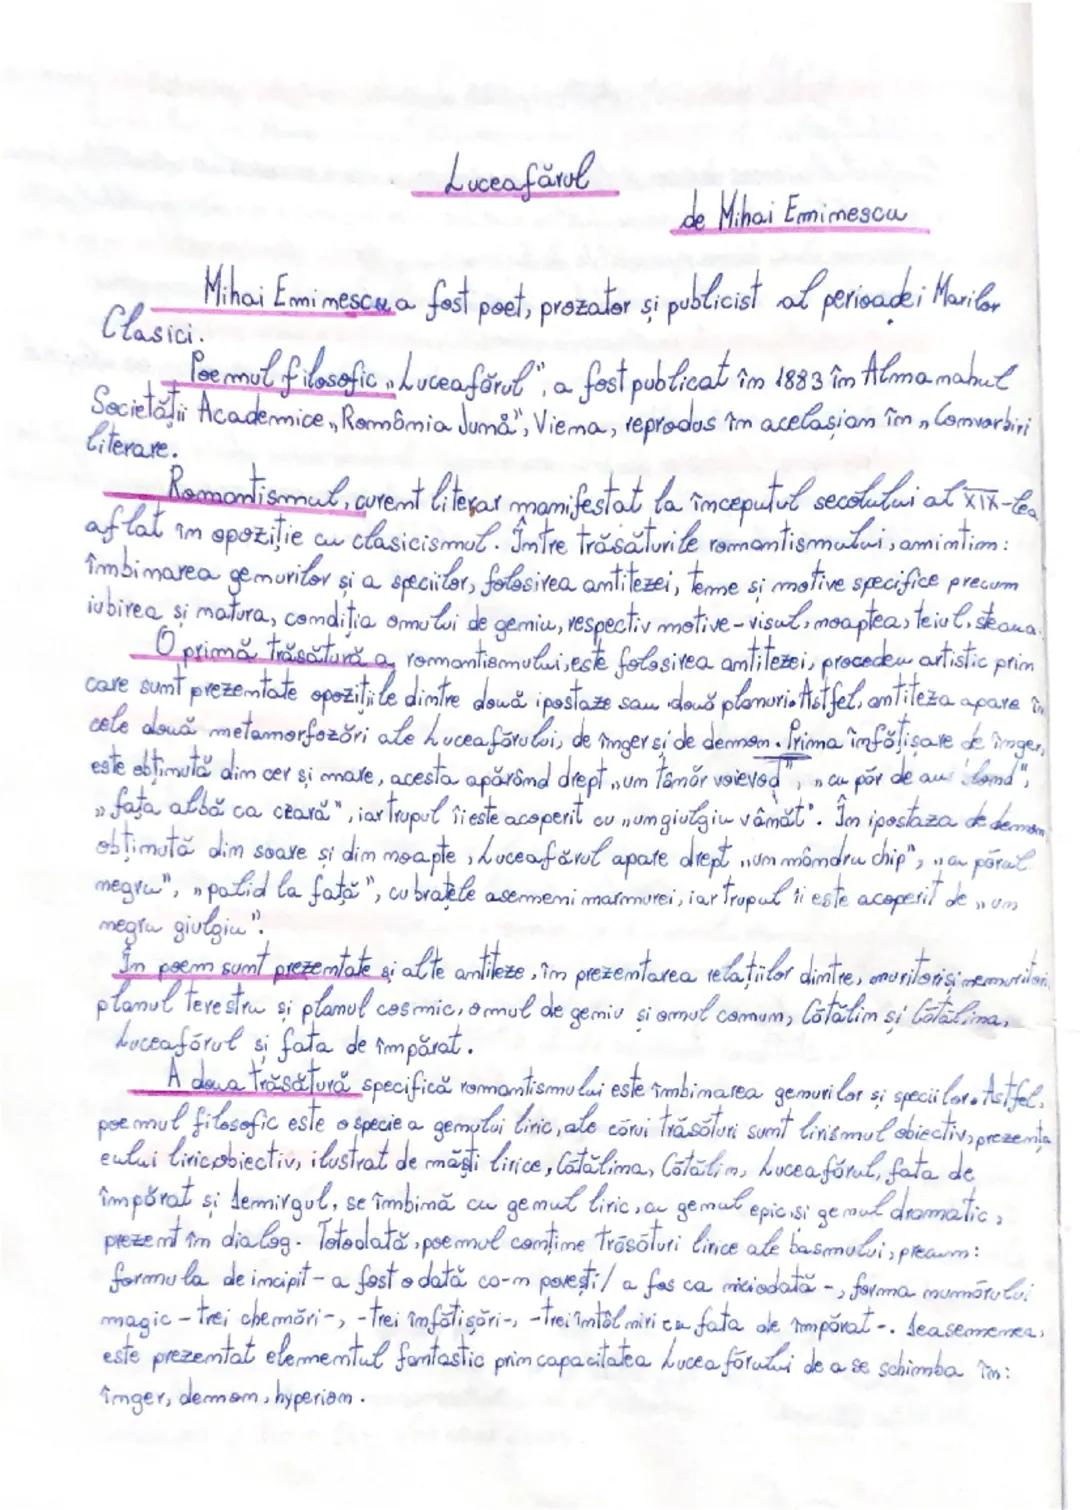 Luceafărul
de Mihai Eminescu
Mihai Eminescu a fost poet, prozator și publicist al perioadei Marilor
Clasici.
Poemul filosofic „Luceafărul", a fost publicat în 1883 în Almanahul
Societății Academice „România Jună", Viena, reprodus în același an în „Convorbiri
literare.
Romantismul, curent literar manifestat la începutul secolului al XIX-lea
aflat în opoziție cu clasicismul. Între trăsăturile romantismului, amintim:
îmbinarea genurilor și a speciilor, folosirea antitezei, teme și motive specifice precum
iubirea și natura, condiția omului de geniu, respectiv motive-visul, noaptea, teiul, steaua.
O primă trăsătură a romantismului, este folosirea antitezei, procedeu artistic prin
care sunt prezentate opozițiile dintre două ipostaze sau două planuri. Astfel, antiteza apare în
cele două metamorfozări ale Luceafărului, de înger și de demon. Prima înfățișare de înger,
este obținută din cer și mare, acesta apărând drept „un tânăr voievod", „cu păr de aur
„fața albă ca ceară", iar trupul îi este acoperit cu „un giulgiu vânăt". În ipostaza de demon
obținută din soare și din noapte, Luceafărul apare drept „un mândru chip", „cu părul
negru", „palid la față", cu brațele asemeni marmurei, iar trupul îi este acoperit de „un
negru giulgiu".
În poem sunt prezentate și alte antiteze, în prezentarea relațiilor dintre, muritori și nemuritori,
planul terestru și planul cosmic, omul de geniu și omul comun, Cătălin și Cătălina,
Luceafărul și fata de împărat.
A doua trăsătură specifică romantismului este îmbinarea genurilor și speciilor. Astfel,
poemul filosofic este o specie a genului liric, ale cărui trăsături sunt lirismul obiectiv, prezența
eului liric obiectiv, ilustrat de măști lirice, Cătălina, Cătălin, Luceafărul, fata de
împărat și demirgul, se îmbină cu genul liric, cu genul epic, și genul dramatic,
prezent în dialog. Totodată, poemul conține trăsături lirice ale basmului, precum:
formula de incipit - a fost odată ca-n povești / a fos ca niciodată -, forma numărului
magic - trei chemări -, - trei înfățișări -, - trei întâlniri cu fata de împărat -. Deasemenea,
este prezentat elementul fantastic prin capacitatea Luceafărului de a se schimba în:
înger, demon, hyperion.